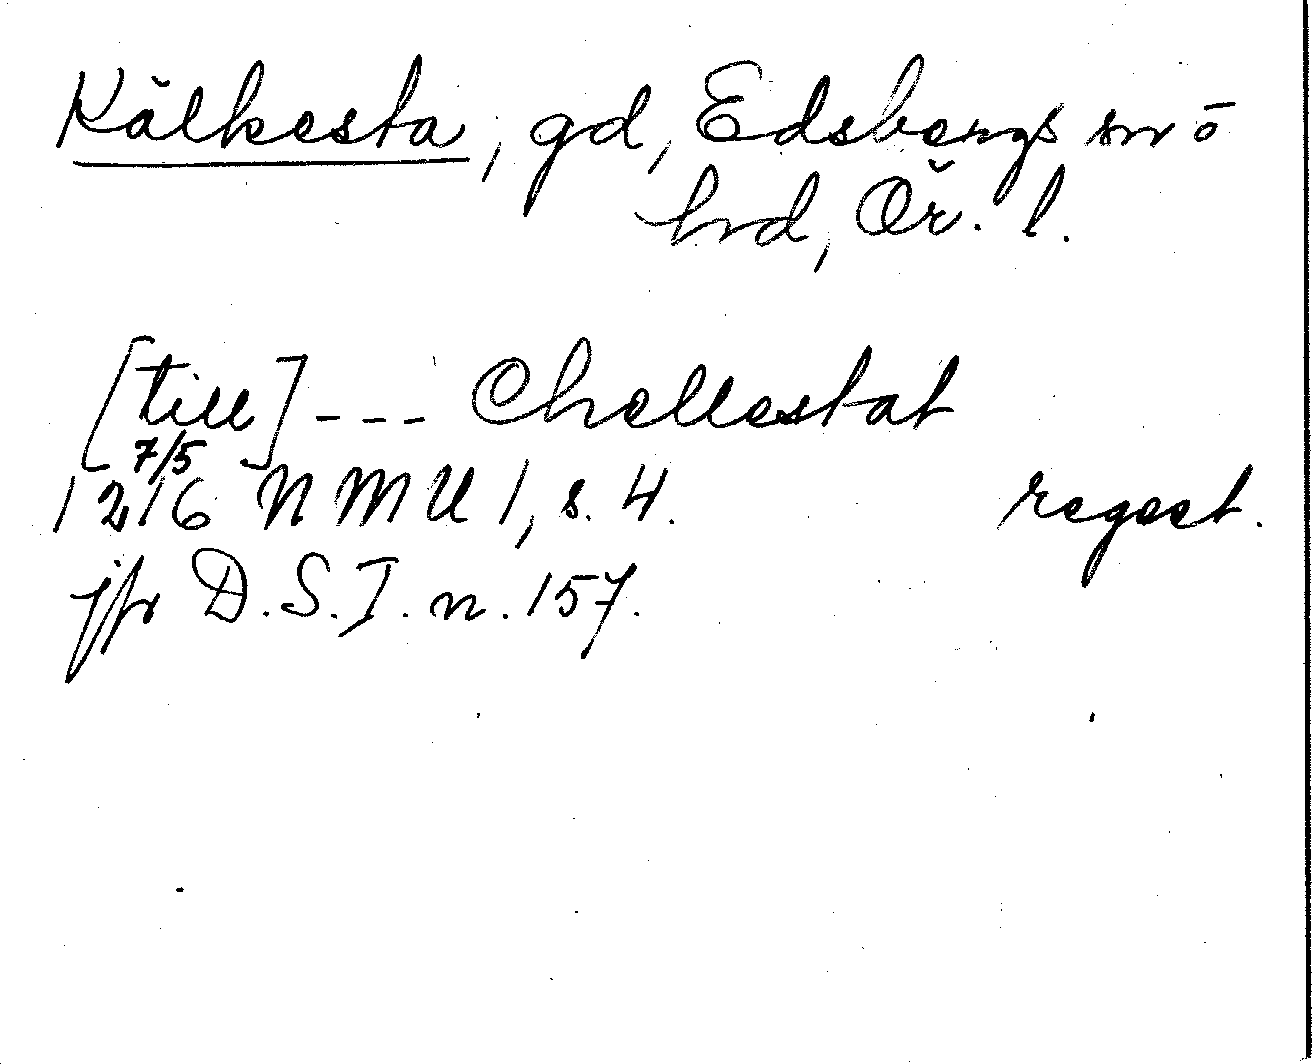 Kälkesta, gd, Edsbergs sn o
hrd, Ör. l.
[till] --- Chellestat
7/5
1216 NMU 1, s. 4. regest.
jfr D.S.I. n. 157.